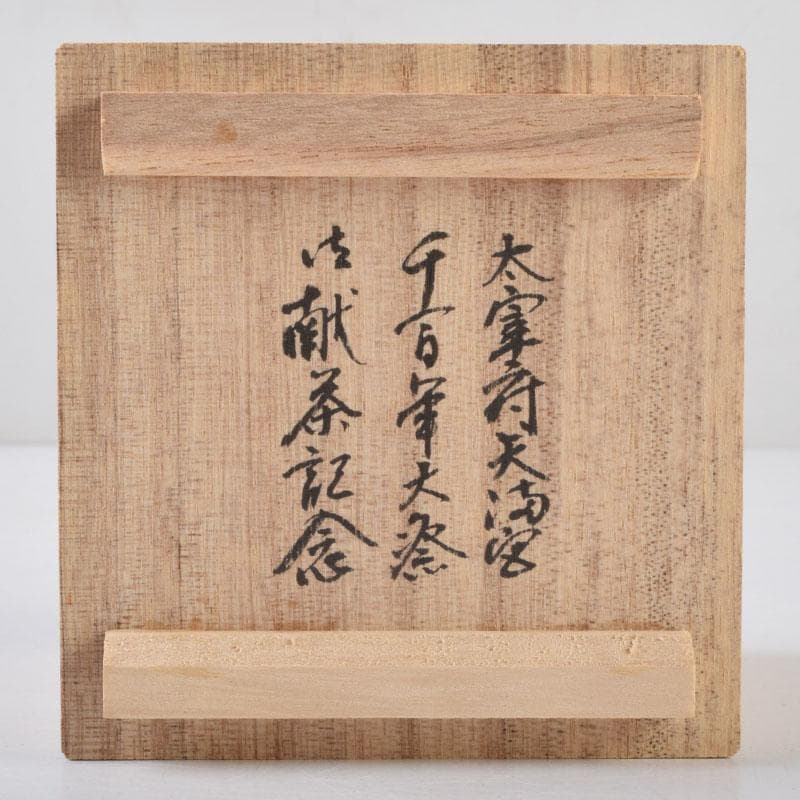 太宰府天満宮
千百年大祭
御献茶記念